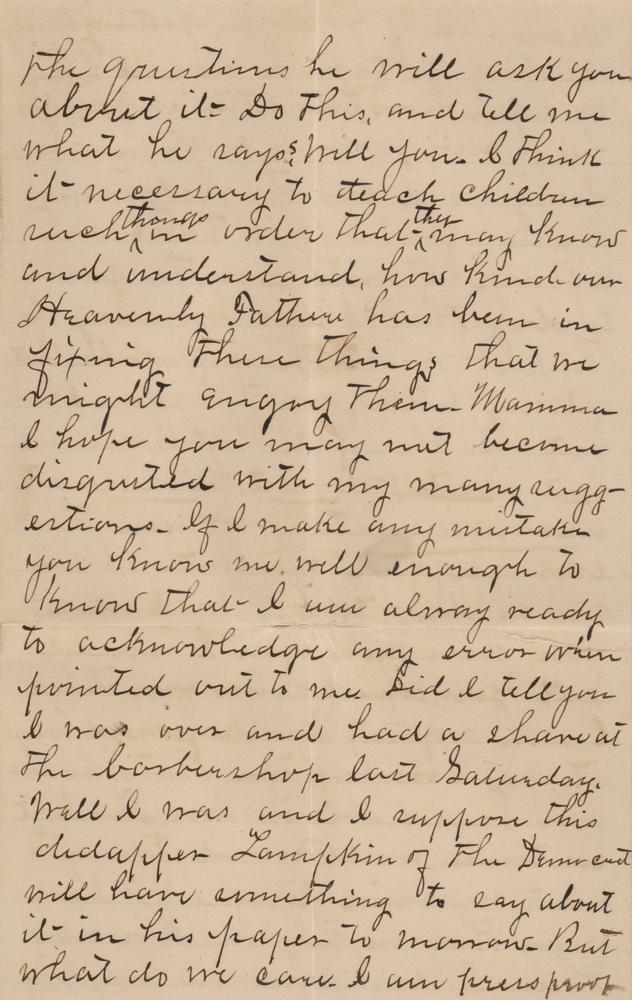 the questions he will ask you
about it - Do this, and tell me
what he says, Will you. I think
it necessary to teach children
such things in order that they may know
and understand, how kind our
Heavenly Father has been in
fixing these things that we
might enjoy them - Mamma
I hope you may not become
disgusted with my many sugg-
estions - If I make any mistake
you know me well enough to
know that I am alway ready
to acknowledge any error when
pointed out to me. Did I tell you
I was over and had a shave at
the barbershop last Saturday.
Well I was and I suppose this
didapper Lampkin of the Democrat
will have something to say about
it in his paper to morrow - But
what do we care - I am press proof